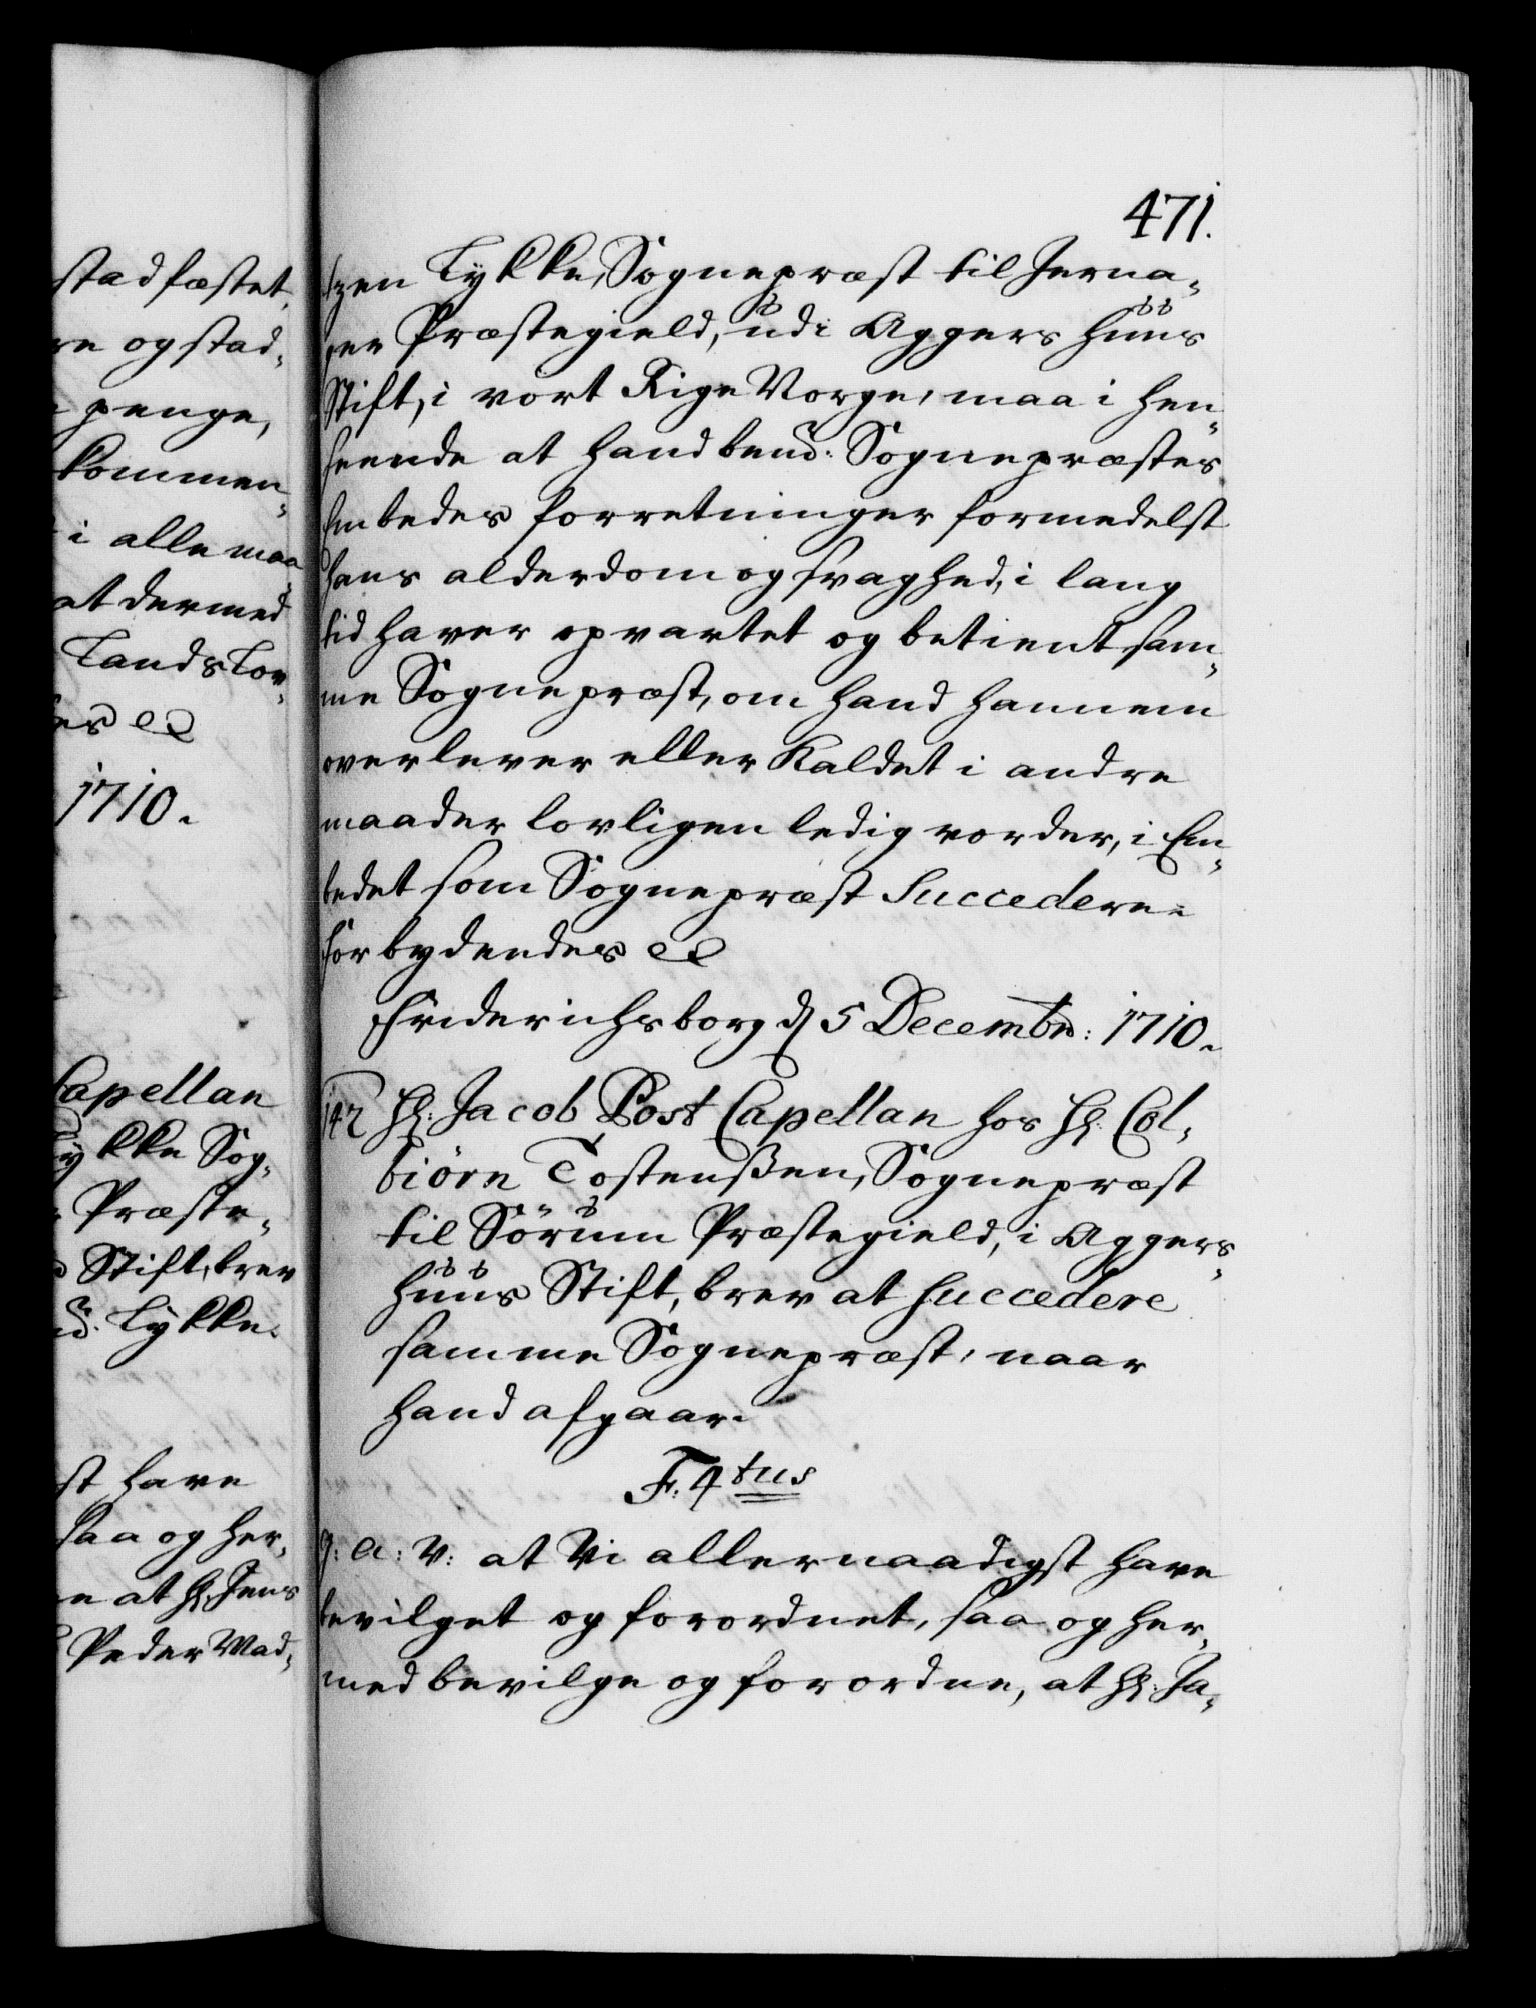 stadfæstet,
re og stad-
penge,
kommen-
i alle maa
at dermed
Lands Lov-
es etc
1710.
Capellan
Lykke Sog-
Præste-
Stift, brev
Lykke.
st have
saa og her-
at Hr. Jens
Peder Mad-
471.
zen Lykke, Sognepræst til Jerna-
ger Præstegield, udi Aggers Huus
Stift, i vort Rige Norge, maa i hen-
seende at hand bemd. Sognepræstes
Embedes forretninger formedelst
hans alderdom og svaghed, i lang
tid haver opvartet og betient sam-
me Sognepræst, om hand hannem
overlever eller Kaldet i andre
maader lovligen ledig vorder, i Em-
bedet som Sognepræst Succedere
forbydendes etc
Friderichsborg d 5 Decembr: 1710.
142 Hr: Jacob Post Capellan hos Hr. Col-
biörn Tostenßen, Sognepræst
til Sörum Præstegield, i Aggers-
huus Stift, brev at succedere
samme Sognepræst, naar
hand afgaar.
F: 4tus
G: A: V: at Vi allernaadigst have
bevilget og forordnet, saa og her-
med bevilge og forordne, at Hr. Ja-